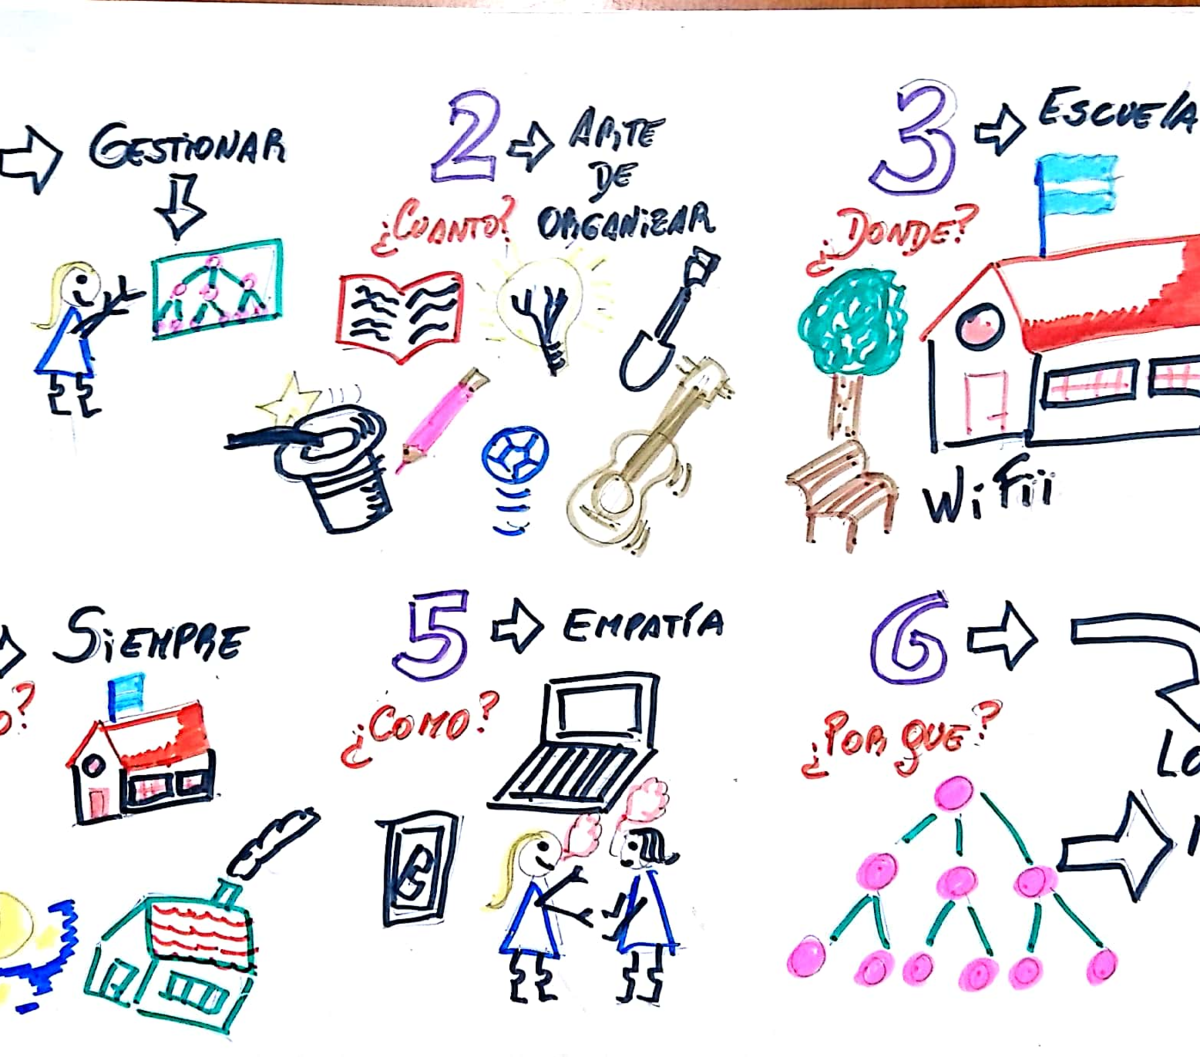 GESTIONAR
2
ARTE
DE
ORGANIZAR
¿CUANTO?
3
ESCUElA
¿DONDE?
WiFiii
SiEMPRE
O?
5
EMPATÍA
¿COMO?
6
¿POR QUE?